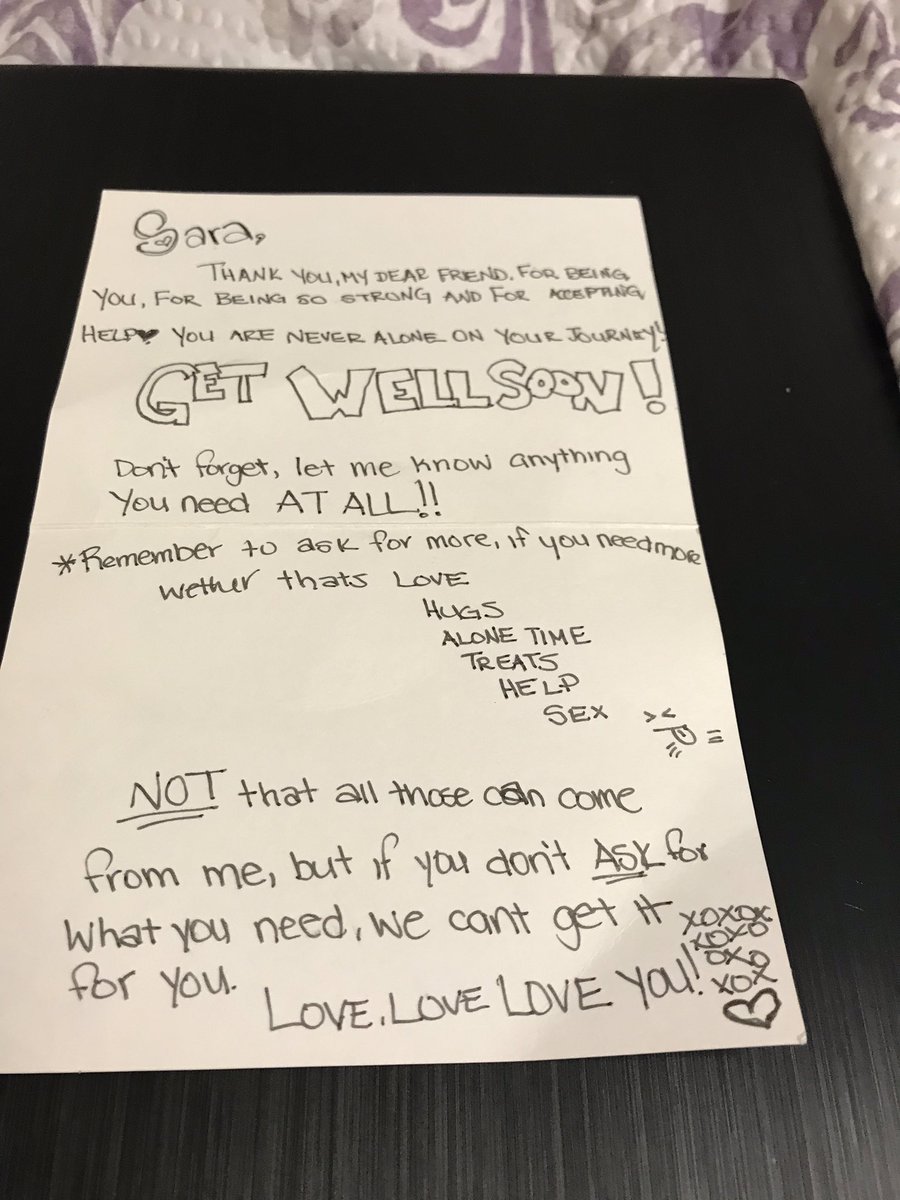 Sara,
THANK YOU, MY DEAR FRIEND. FOR BEING
YOU, FOR BEING SO STRONG AND FOR ACCEPTING
HELP♥ YOU ARE NEVER ALONE ON YOUR JOURNEY!
GET WELL SOON!
Don't forget, let me know anything
You need AT ALL!!
*Remember to ask for more, if you need more
wether thats LOVE
HUGS
ALONE TIME
TREATS
HELP
SEX
NOT that all those can come
from me, but if you don't ASK for
what you need, we cant get it
for you.
LOVE, LOVE LOVE YOU!
XOXOX
XOXO
OXO
XOX